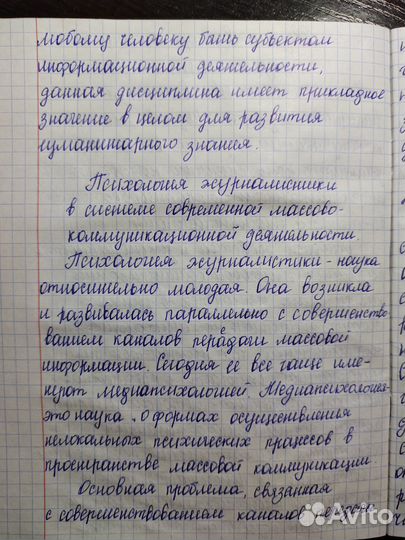 любому человеку быть субъектом
информационной деятельности,
данная дисциплина имеет прикладное
значение в целом для развития
гуманитарного знания.
Психология журналистики
в системе современной массово-
коммуникационной деятельности.
Психология журналистики - наука
относительно молодая. Она возникла
и развивалась параллельно с совершенство-
ванием каналов передачи массовой
информации. Сегодня ее все чаще име-
нуют медиапсихологией. Медиапсихология-
это наука о формах осуществления
нелокальных психических процессов в
пространстве массовой коммуникации
Основная проблема, связанная
с совершенствованием каналов
Avito